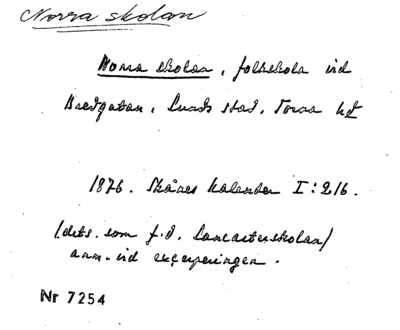 Norra skolan
Norra skolan, folkskola vid
Bredgatan, Lunds stad, Torna hd
1876. Skånes kalender I:216.
/dets. som f.d. Lancasterskolan/
anm. vid excerperingen.
Nr 7254